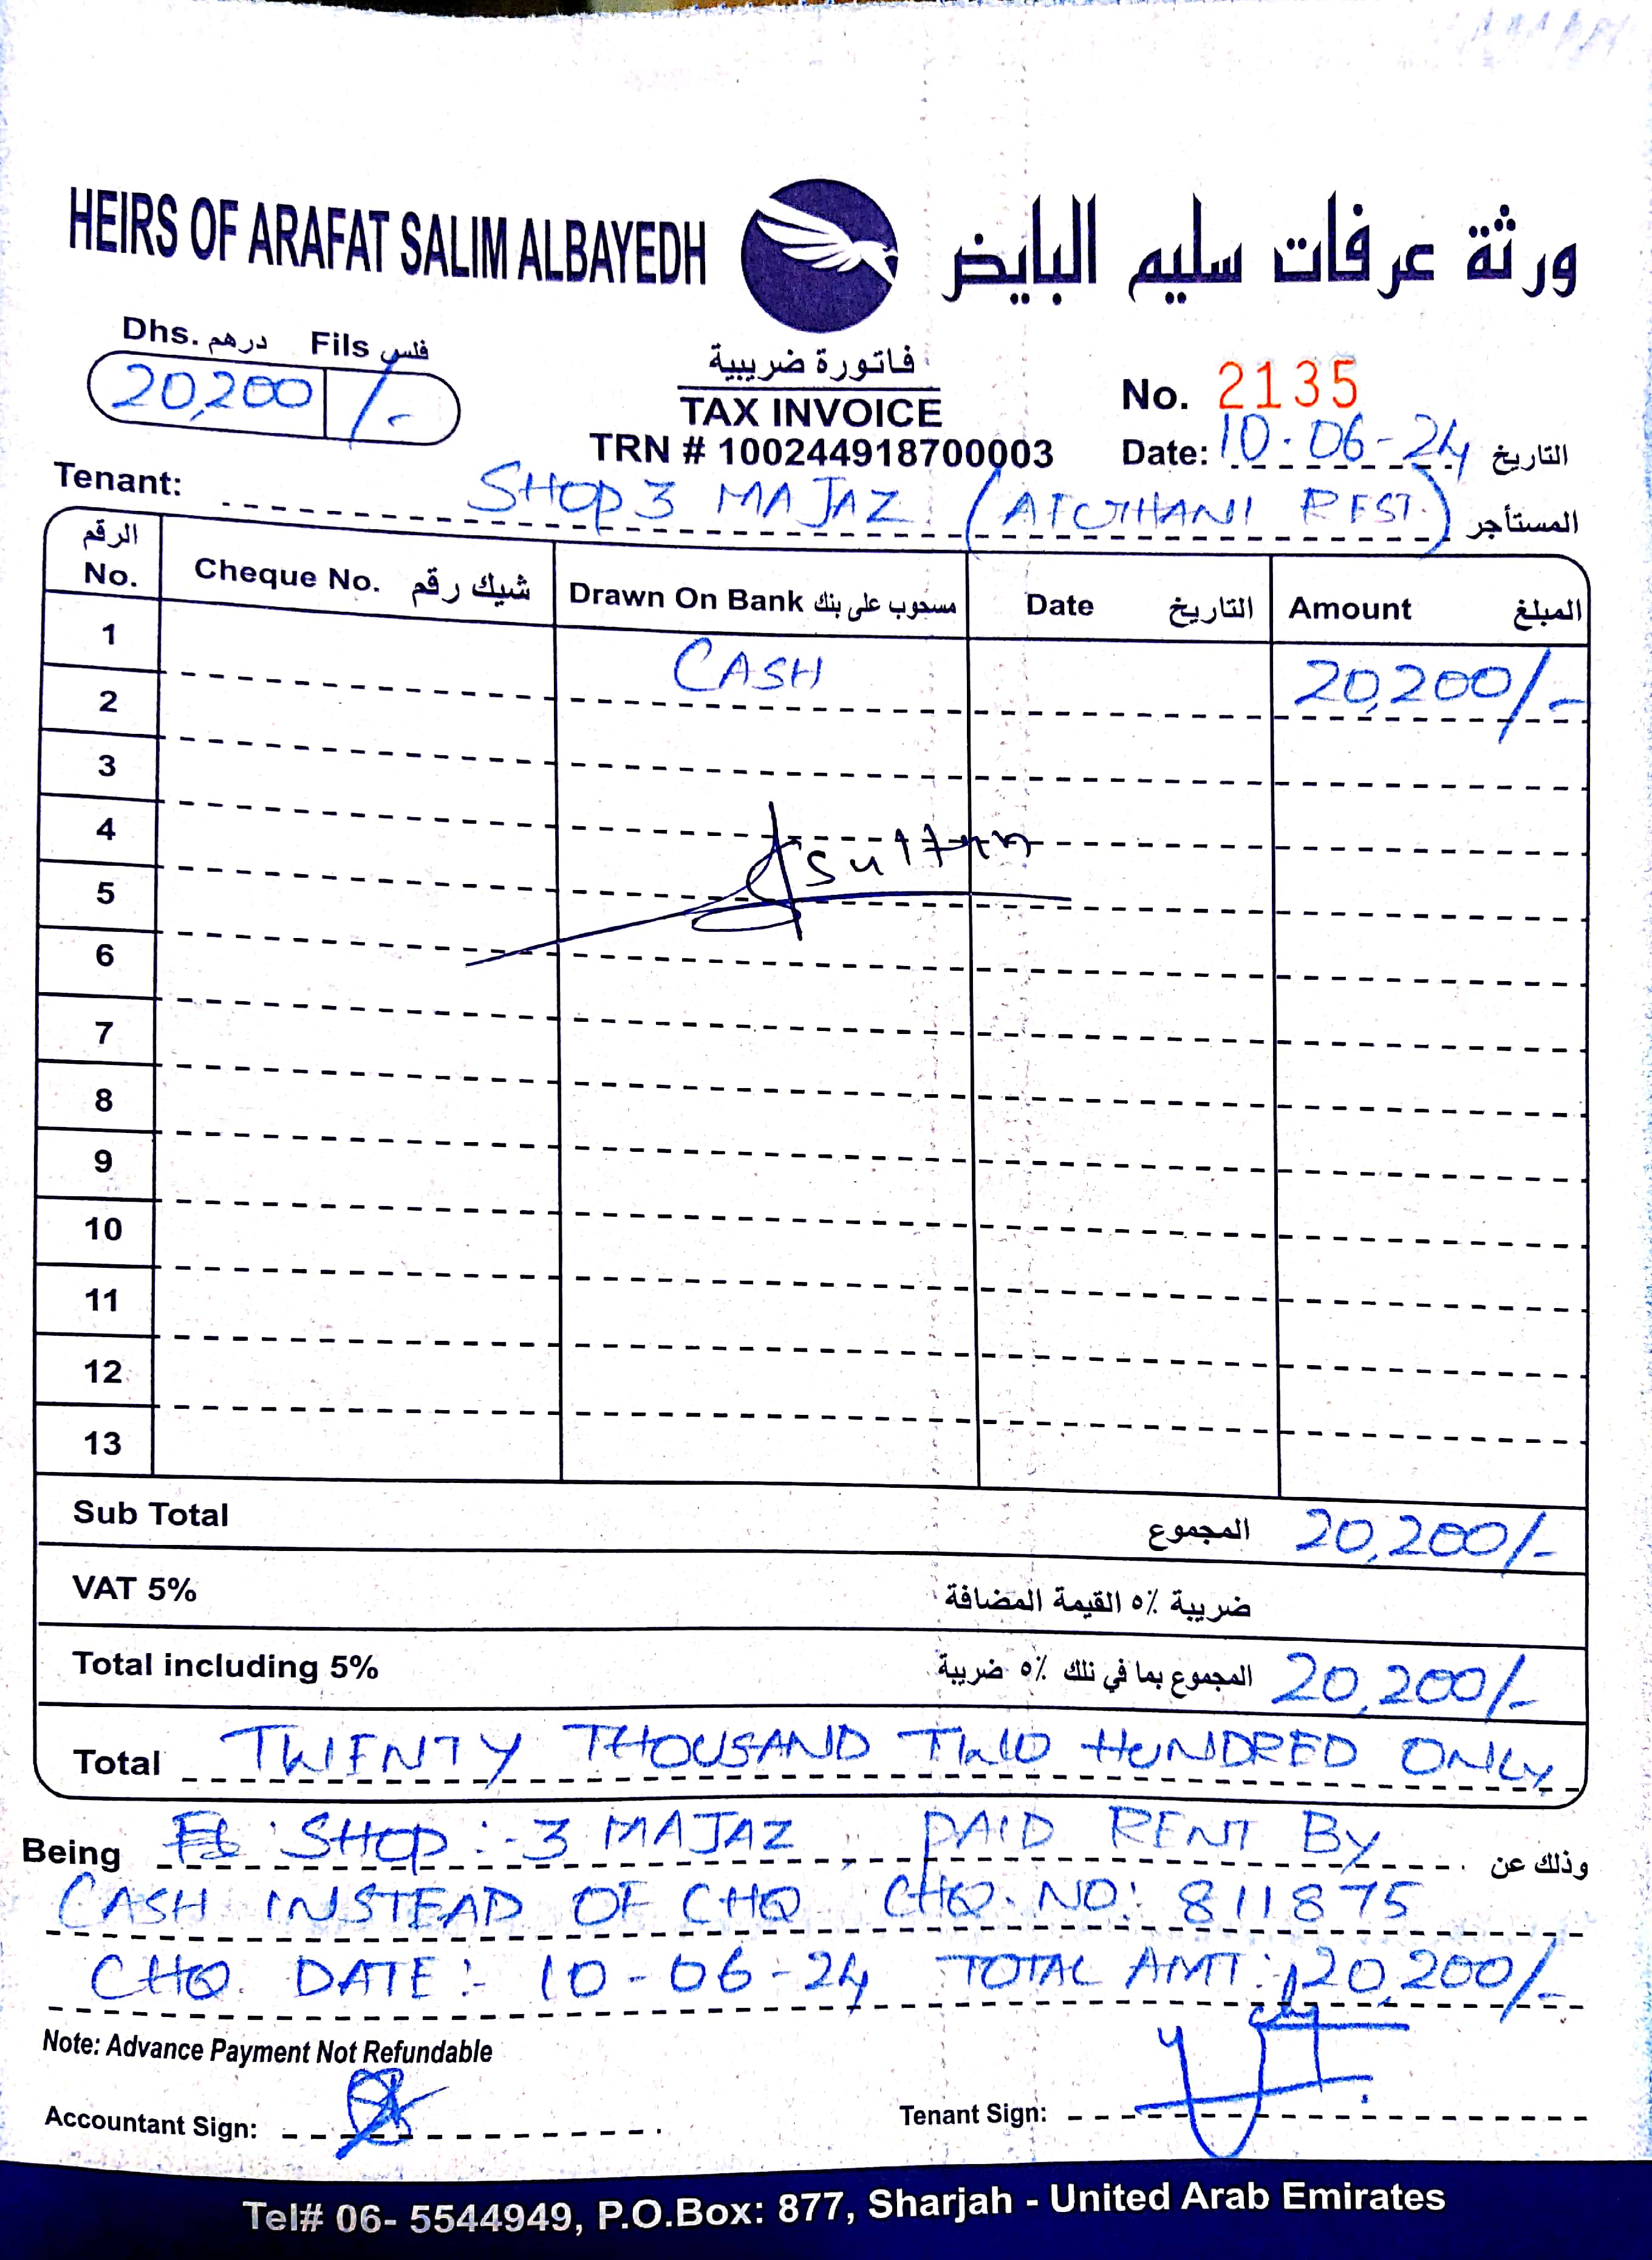 HEIRS OF ARAFAT SALIM ALBAYEDH ورثة عرفات سليم البايض
Dhs. درهم Fils فلس
20,200 /-
فاتورة ضريبية
TAX INVOICE
TRN # 100244918700003
No. 2135
Date: 10-06-24 التاريخ
Tenant: SHOP 3 MAJAZ (AFGHANI REST.) المستأجر
الرقم No. Cheque No. شيك رقم Drawn On Bank مسحوب على بنك Date التاريخ Amount المبلغ
1 CASH 20,200/-
2
3
4 sultan
5
6
7
8
9
10
11
12
13
Sub Total المجموع 20,200/-
VAT 5% ضريبة ٥٪ القيمة المضافة
Total including 5% المجموع بما في ذلك ٥٪ ضريبة 20,200/-
Total TWENTY THOUSAND TWO HUNDRED ONLY
Being SHOP:-3 MAJAZ, PAID RENT BY وذلك عن
CASH INSTEAD OF CHQ CHQ. NO: 811875
CHQ. DATE:- 10-06-24 TOTAL AMT: 20,200/-
Note: Advance Payment Not Refundable
Accountant Sign: Tenant Sign:
Tel# 06- 5544949, P.O.Box: 877, Sharjah - United Arab Emirates